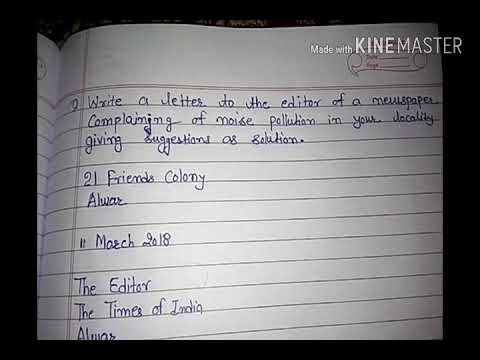 Made with KINEMASTER
Date
Page
Write a letter to the editor of a newspaper
Complaining of noise pollution in your locality
giving suggestions as solution.
21 Friends Colony
Alwar
11 March 2018
The Editor
The Times of India
Alwar